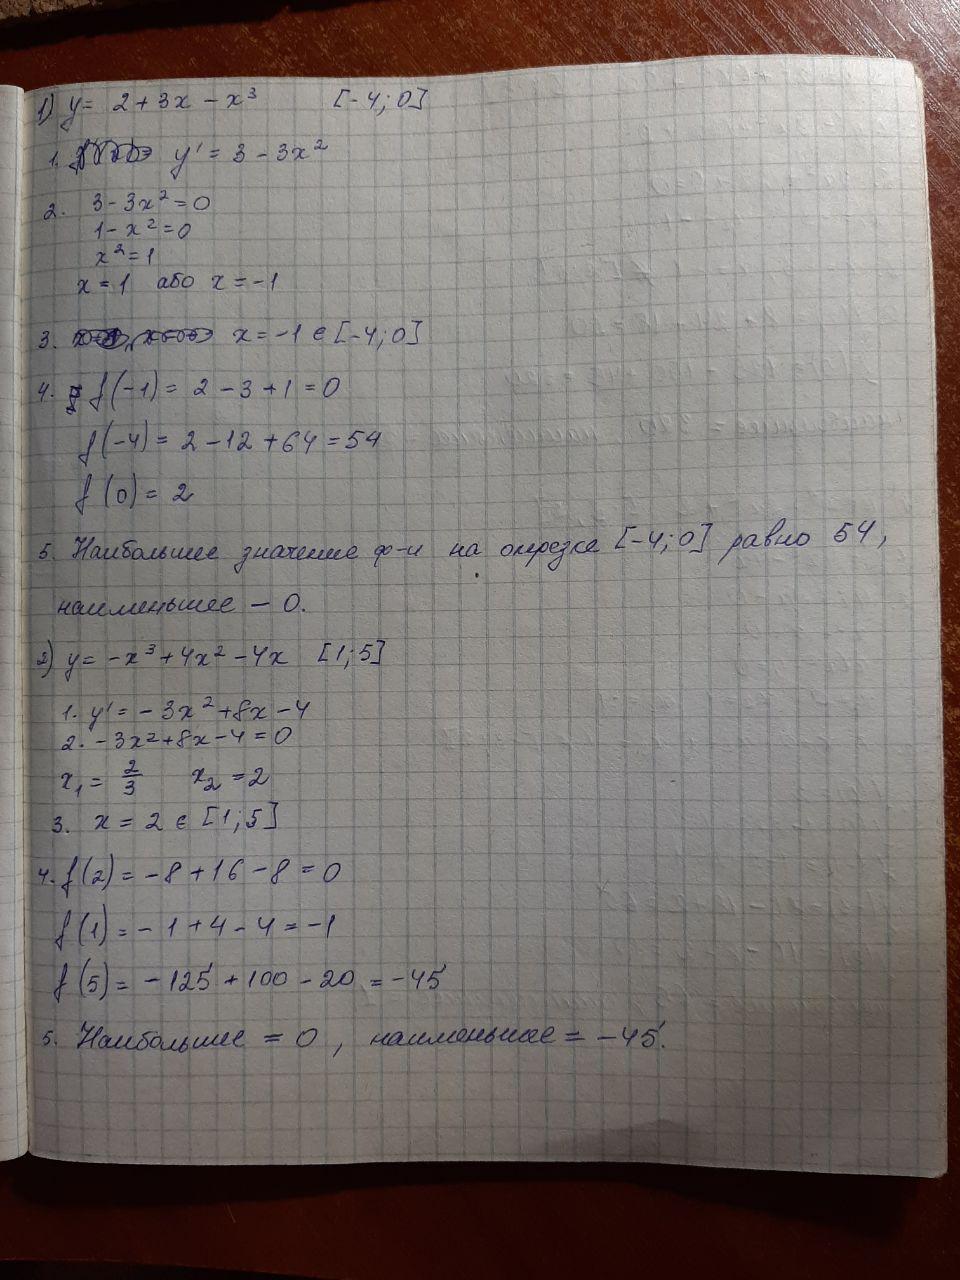 1) y = 2 + 3x - x³ [-4; 0]
1. y' = 3 - 3x²
2. 3 - 3x² = 0
1 - x² = 0
x² = 1
x = 1 або x = -1
3. x = -1 ∈ [-4; 0]
4. f(-1) = 2 - 3 + 1 = 0
f(-4) = 2 - 12 + 64 = 54
f(0) = 2
5. Наибольшее значение ф-и на отрезке [-4; 0] равно 54,
наименьшее - 0.
2) y = -x³ + 4x² - 4x [1; 5]
1. y' = -3x² + 8x - 4
2. -3x² + 8x - 4 = 0
x₁ = 2/3 x₂ = 2
3. x = 2 ∈ [1; 5]
4. f(2) = -8 + 16 - 8 = 0
f(1) = -1 + 4 - 4 = -1
f(5) = -125 + 100 - 20 = -45
5. Наибольшее = 0, наименьшее = -45.